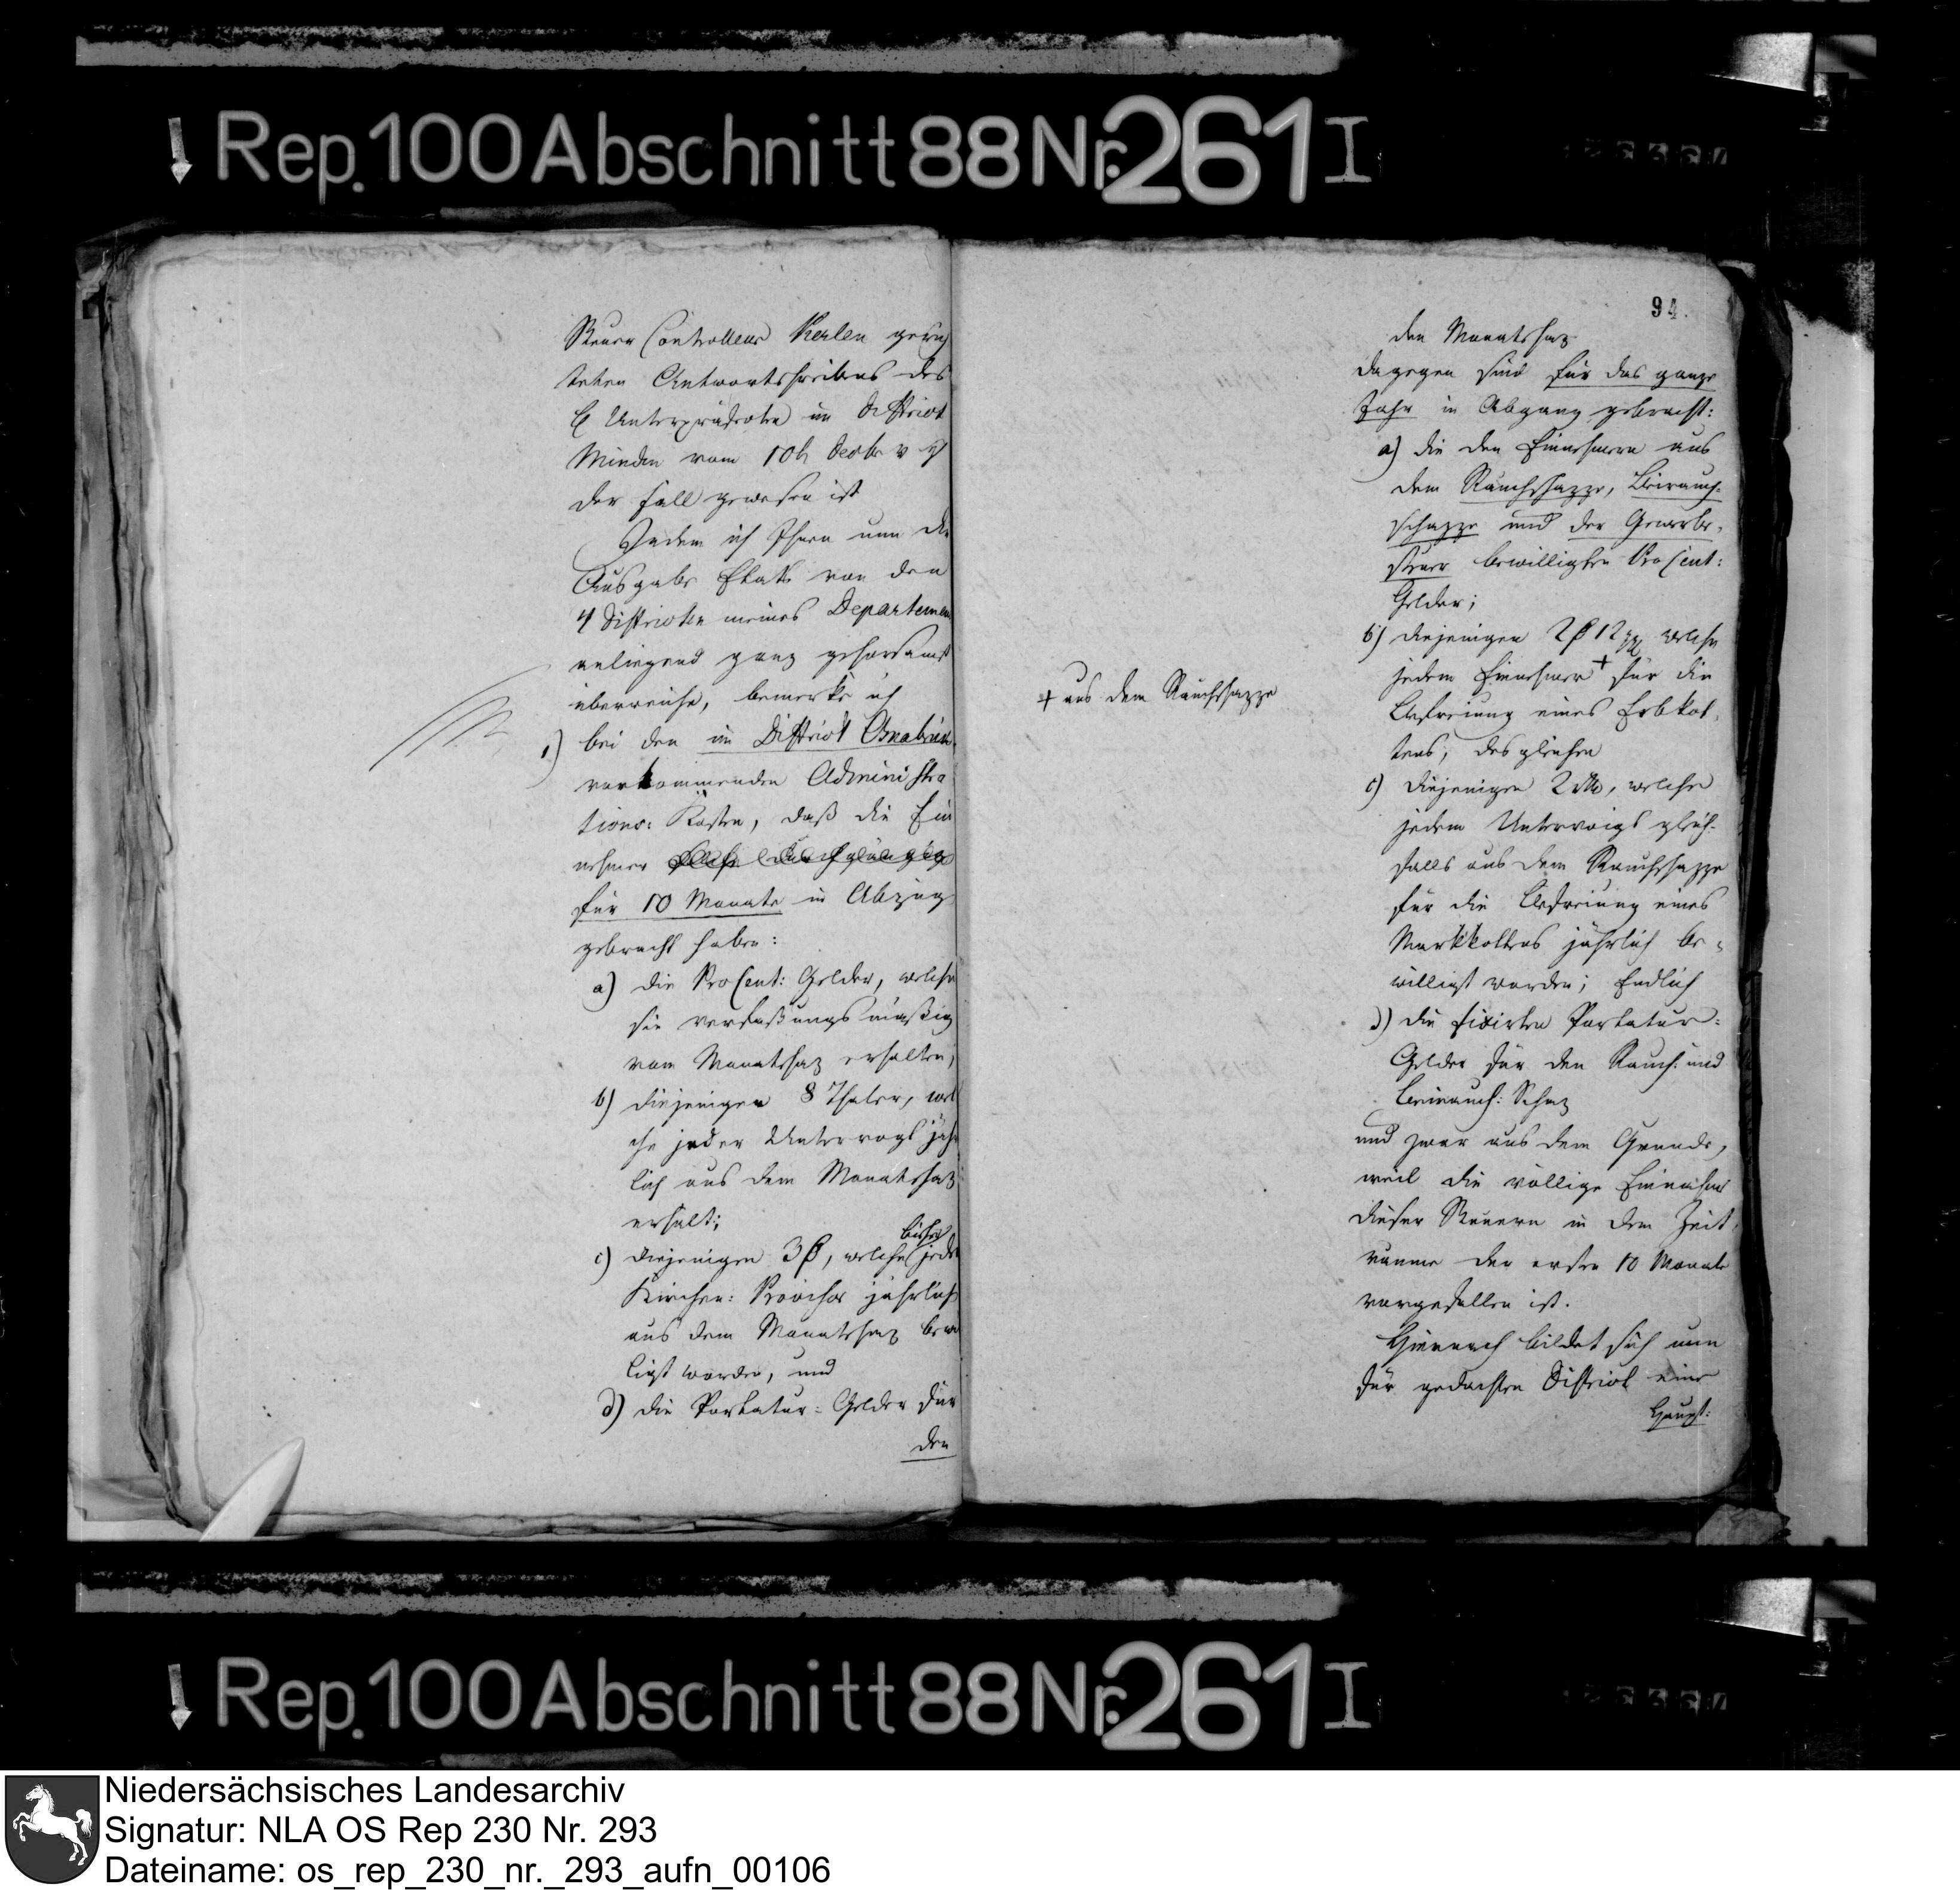 Rep. 100 Abschnitt 88 Nr. 261 I
Steuer Controlleur Kerlen gerich
teten Antwortschreibens des
H Unterpräfecten im District
Minden vom 10t Decbr v J
der Fall gewesen ist
Indem ich Ihnen nun die
Ausgabe Etats von den
4 Districten meines Departemen
anliegend ganz gehorsamst
überreiche, bemerke ich
1) bei den im District Osnabrück
vorkommenden Administra
tions: Kosten, daß die Ein
nehmer
für 10 Monate in Abzug
gebracht haben:
a) die ProCent: Gelder, welche
sie verfaßungsmäßig
vom Monatschaz erhalten;
b) diejenigen 8 Thaler, wel
che jeder Untervogt jähr
lich aus dem Monatschaz
erhält;
bisher
c) diejenigen 3 , welche jeder
Kirchen: jährlich
aus dem Monatschaz bewil
ligt worden, und
d) die Portatur: Gelder für
den
94.
den Monatschaz
dagegen sind für das ganze
Jahr in Abgang gebracht:
a) die den Einnehmern aus
dem Rauchschazze, Beirauch:
schazze und der Gewerbe:
steuer bewilligten ProCent:
Gelder;
b) diejenigen 2 12 welche
jedem Einnehmer + für die
Befreiung eines Erbkot:
tens; desgleichen
+ aus dem Rauchschazze
c) diejenigen 2 , welche
jedem Untervoigt gleich:
falls aus dem Rauchschazze
für die Befreiung eines
Markkottens jährlich be:
willigt worden; Endlich
d) die fixirten Portatur:
Gelder für den Rauch: und
Beirauch: Schaz
und zwar aus dem Grunde,
weil die völlige Einnahme
dieser Steuern in dem Zeit
raume der ersten 10 Monate
vorgefallen ist.
Hiernach bildet sich nun
für gedachten District eine
Haupt:
Rep. 100 Abschnitt 88 Nr. 261 I
Niedersächsisches Landesarchiv
Signatur: NLA OS Rep 230 Nr. 293
Dateiname: os_rep_230_nr._293_aufn_00106